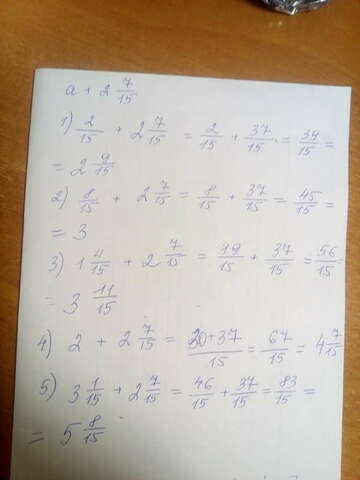 a + 2 7/15
1) 2/15 + 2 7/15 = 2/15 + 37/15 = 39/15 =
= 2 9/15
2) 8/15 + 2 7/15 = 8/15 + 37/15 = 45/15 =
= 3
3) 1 4/15 + 2 7/15 = 19/15 + 37/15 = 56/15 =
= 3 11/15
4) 2 + 2 7/15 = 30+37/15 = 67/15 = 4 7/15
5) 3 1/15 + 2 7/15 = 46/15 + 37/15 = 83/15 =
= 5 8/15